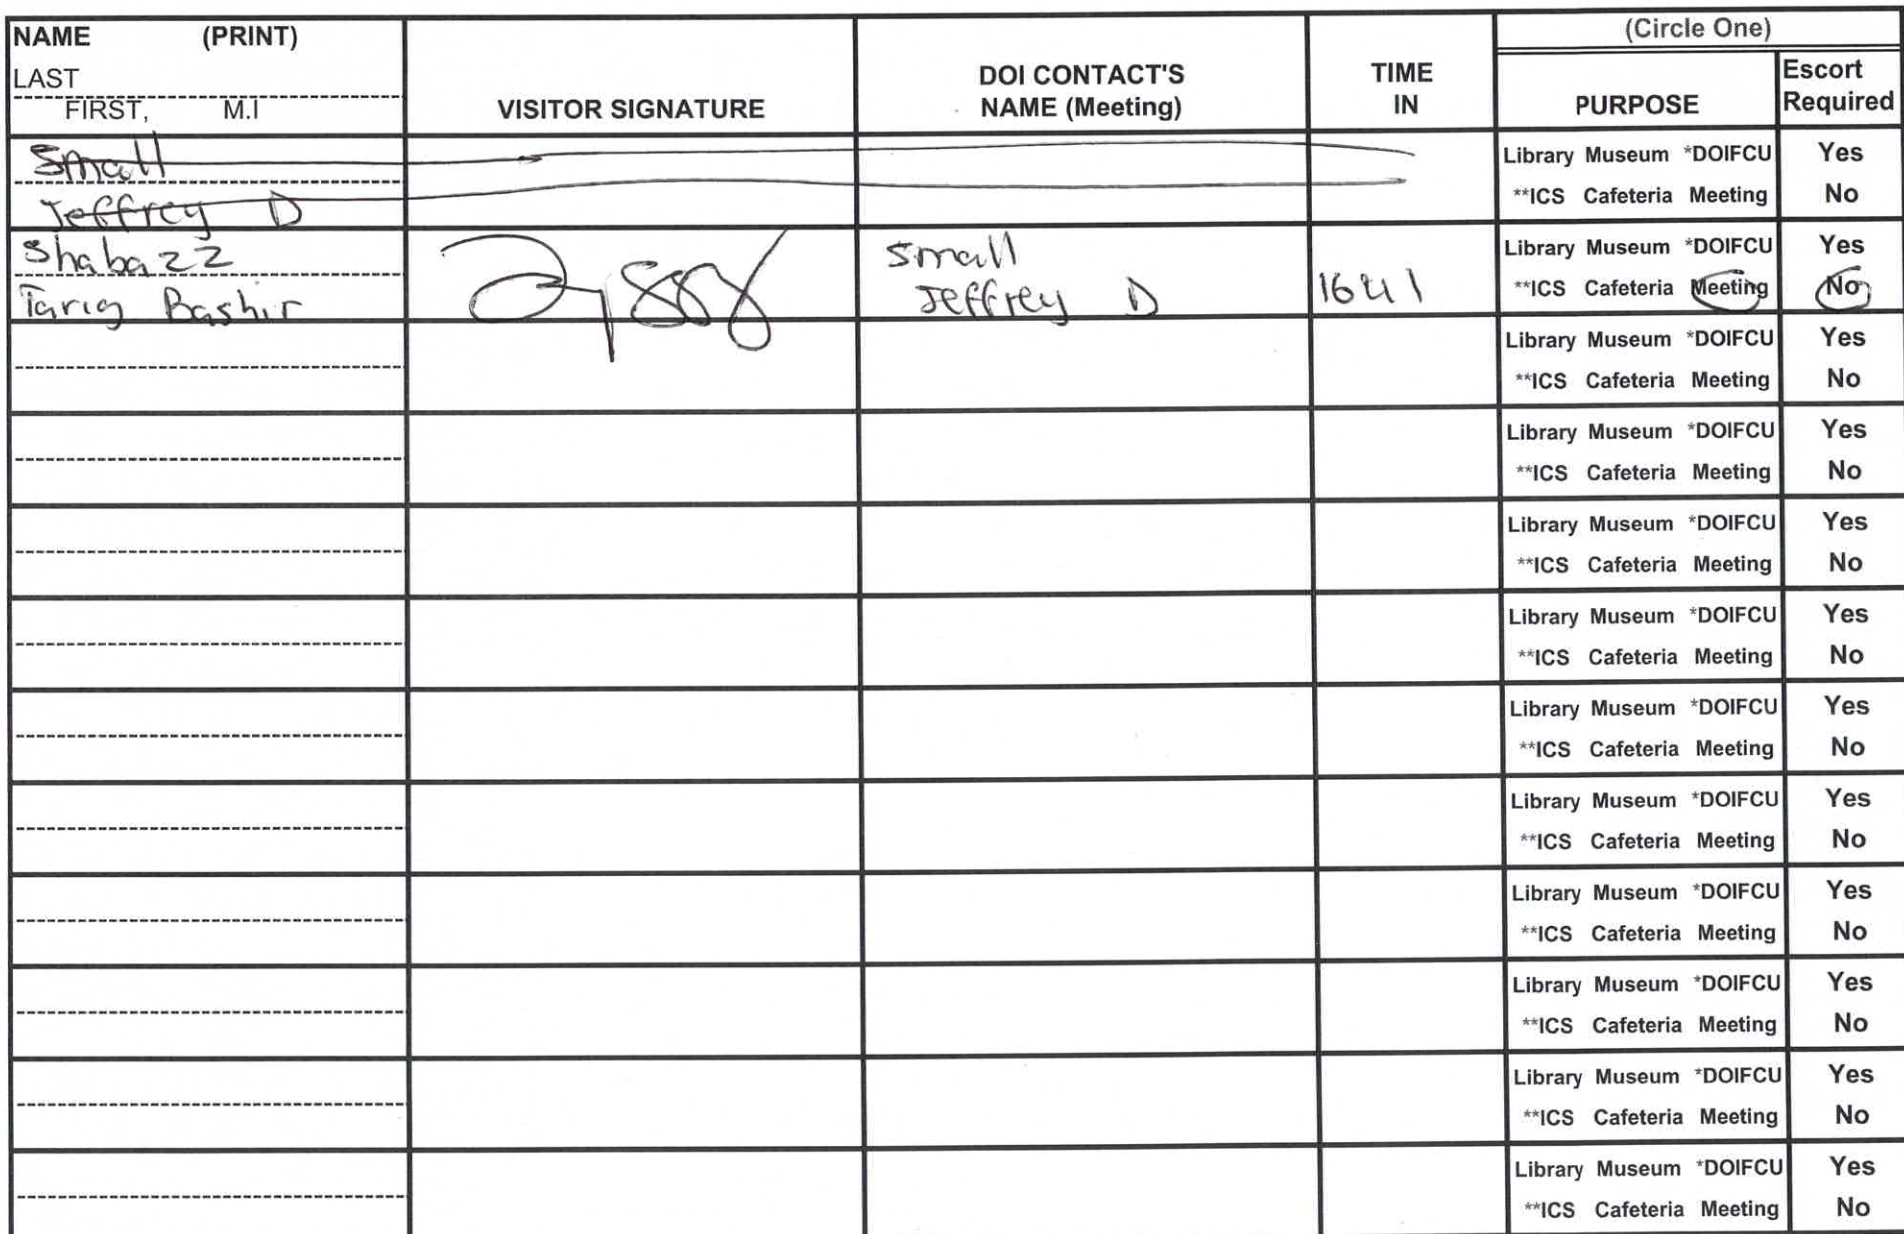 NAME (PRINT)
LAST
FIRST, M.I
VISITOR SIGNATURE
DOI CONTACT'S
NAME (Meeting)
TIME
IN
(Circle One)
PURPOSE
Escort
Required
Small
Jeffrey D
Library Museum *DOIFCU Yes
**ICS Cafeteria Meeting No
Shabazz
Tariq Bashir
Small
Jeffrey D
1641
Library Museum *DOIFCU Yes
**ICS Cafeteria Meeting No
Library Museum *DOIFCU Yes
**ICS Cafeteria Meeting No
Library Museum *DOIFCU Yes
**ICS Cafeteria Meeting No
Library Museum *DOIFCU Yes
**ICS Cafeteria Meeting No
Library Museum *DOIFCU Yes
**ICS Cafeteria Meeting No
Library Museum *DOIFCU Yes
**ICS Cafeteria Meeting No
Library Museum *DOIFCU Yes
**ICS Cafeteria Meeting No
Library Museum *DOIFCU Yes
**ICS Cafeteria Meeting No
Library Museum *DOIFCU Yes
**ICS Cafeteria Meeting No
Library Museum *DOIFCU Yes
**ICS Cafeteria Meeting No
Library Museum *DOIFCU Yes
**ICS Cafeteria Meeting No